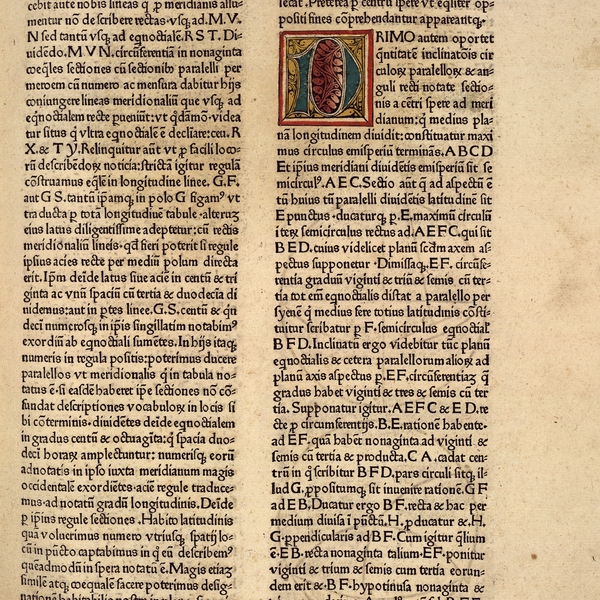 cebit aute nobis lineas q̄ ꝑ meridianis assu-
mentur nō de scribere rectas ·vsqꝫ ad.M.V.
N sed tantū vsqꝫ ad eqnoctialē.R S T. Di-
uidēdo.M V N. circūferentiā in nonaginta
coeq̄les sectiones cū sectionibꝰ paralelli per
meroem cū numero ac mensura dabitur hijs
coniungere lineas meridionaliū que vsqꝫ ad
eqnoctialem recte pueniūt: vt qdāmō·videa
tur situs q̄ vltra eqnoctialē ē decliare: ceu. R
X.& T Y. Relinquitur aūt vt ꝓ facili loco-
rū describēdoꝝ noticia: strictā igitur regulā
cōstruamus eq̄lē in longitudine linee. G.F.
aut G S. tantū ipamqꝫ in polo G figamꝰ vt
tra ducta ꝑ totā longitudinē tabule ·alterutꝫ
eius latus diligentissime adeptetur: cū rectis
meridionaliū lineis· qd fieri poterit si regule
ipsius acies recte per mediū polum directa
erit. Ipm deīde latus siue aciē in centū & tri
ginta ac vnū spaciū cū tertia & duodecīa di
uidemus: aut in ꝑtes linee.G S. centū & qn
deci numerosqꝫ in ipis singillatim notabimꝰ
exordiū ab eqnoctiali sumētes. In hijs itaqꝫ
numeris in regula positis: poterimus ducere
parellelos vt meridionalis q̄ in tabula no-
tatus ē· si easdē haberet ipe sectiones nō cō-
fundat descriptiones vocabuloꝝ in locis si
bi cōterminis· diuidētes deīde eqnoctialem
in gradus centū & octuagīta: q̄ spacia duo-
deci horaꝝ amplectuntur: numerisqꝫ eorū
adnotatis in ipso iuxta meridianum magis
occidentalē exordiētes· aciē regule traduce-
mus· ad notatū gradū longitudinis. Deīde
ꝑ ipius regule sectiones . Habito latitudinis
qua volucrimus numero vtriusqꝫ spatij lo-
cū in pūcto captabimus in q̄ eū describemꝰ
queadmodū in spera notatū ē. Magis etiaꝫ
simile atqꝫ coequale facere poterimus desig-
nationē habitabilis nostre in
fecat. Preterea ꝑ centrū spere vt eqliter op-
positi sines cōprehendantur appareantqꝫ·
PRIMO autem oportet
qntitatē inclinatōis cir
culoꝝ paralleloꝝ & an-
guli recti notate sectio-
nis a cētri spere ad meri
dianum: q̄ medius pla-
nā longitudinem diuidit: constituatur maxi
mus circulus emisperiū terminās. A B C D
Et ipius meridiani diuidētis emisperiū sit se
micirculꝰ. A E C. Sectio aūt q̄ ad aspectū ē
tū huius tū paralleli diuidētis latitudinē sit
E punctus ·ducaturqꝫ ꝑ.E.maximū circulū
iteꝝ semicirculus rectus ad.A E F C.qui sit
B E D. cuius videlicet planū scdm axem as-
pectus supponetur ·Dimissaqꝫ.E F. circūfe-
rentia graduū viginti & triū & semis cū ter-
tia tot em eqnoctialis distat a paralello per
syenē q̄ medius fere totius latitudinis cōsti-
tuitur scribatur ꝑ F. semicirculus eqnoctial
B F D. Inclinatū ergo videbitur tūc planū
eqnoctialis & cetera parallelorum alioꝝ ad
planū axis aspectus ꝑ.E F. circūferentiaꝫ q̄
gradus habet viginti & tres & semis cū ter
tia. Supponatur igitur. A E F C & E D. re
cte ꝓ circumferentijs. B.E. rationē habente-
ad E F. quā habet nonaginta ad viginti &
semis cū tertia & producta. C A. cadat cen-
trū in q̄ scribitur B F D. pars circuli sitqꝫ il-
lud G. ꝓpositumqꝫ sit inuenire rationē. G F
ad E B. Ducatur ergo B F. recta & hac per
medium diuisa ī pūctū. H. ꝓducatur & . H.
G. ꝑpendicularis ad B F. Cum igitur q̄lium
ē·E B· recta nonaginta talium·E F·ponitur
viginti & trium & semis cum tertia eorun-
dem erit & B F· hypotinusa nonaginta &